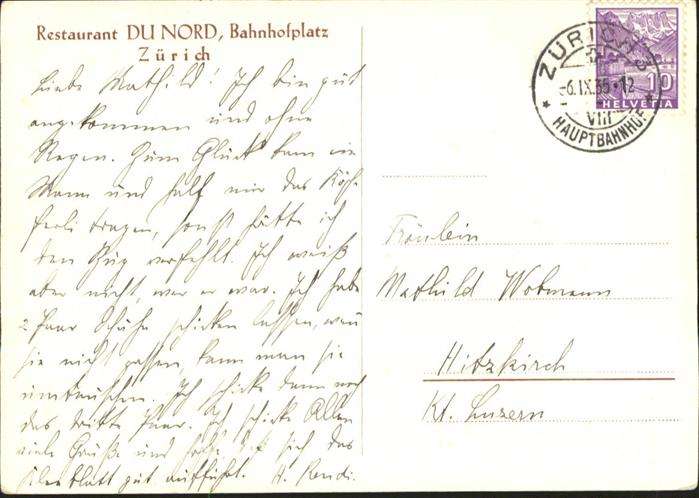 Restaurant DU NORD, Bahnhofplatz
Zürich
Liebe Mathild! Ich bin gut
angekommen und ohne
Regen. Zum Glück kam ein
Mann und half mir das Köf-
ferli tragen, sonst hätte ich
den Zug verfehlt. Ich weiß
aber nicht, wer er war. Ich habe
2 Paar Schuhe schicken lassen, wenn
sie nicht passen, kann man sie
umtauschen. Ich schicke dann noch
das dritte Paar. Ich schicke Allen
viele Grüße und hoffe daß sich das
gut aufführt. H.
ZÜRICH
-6.IX.35-12
VIII
HAUPTBAHNHOF
10
HELVETIA
Fräulein
Mathild Wobmann
Hitzkirch
Kt. Luzern